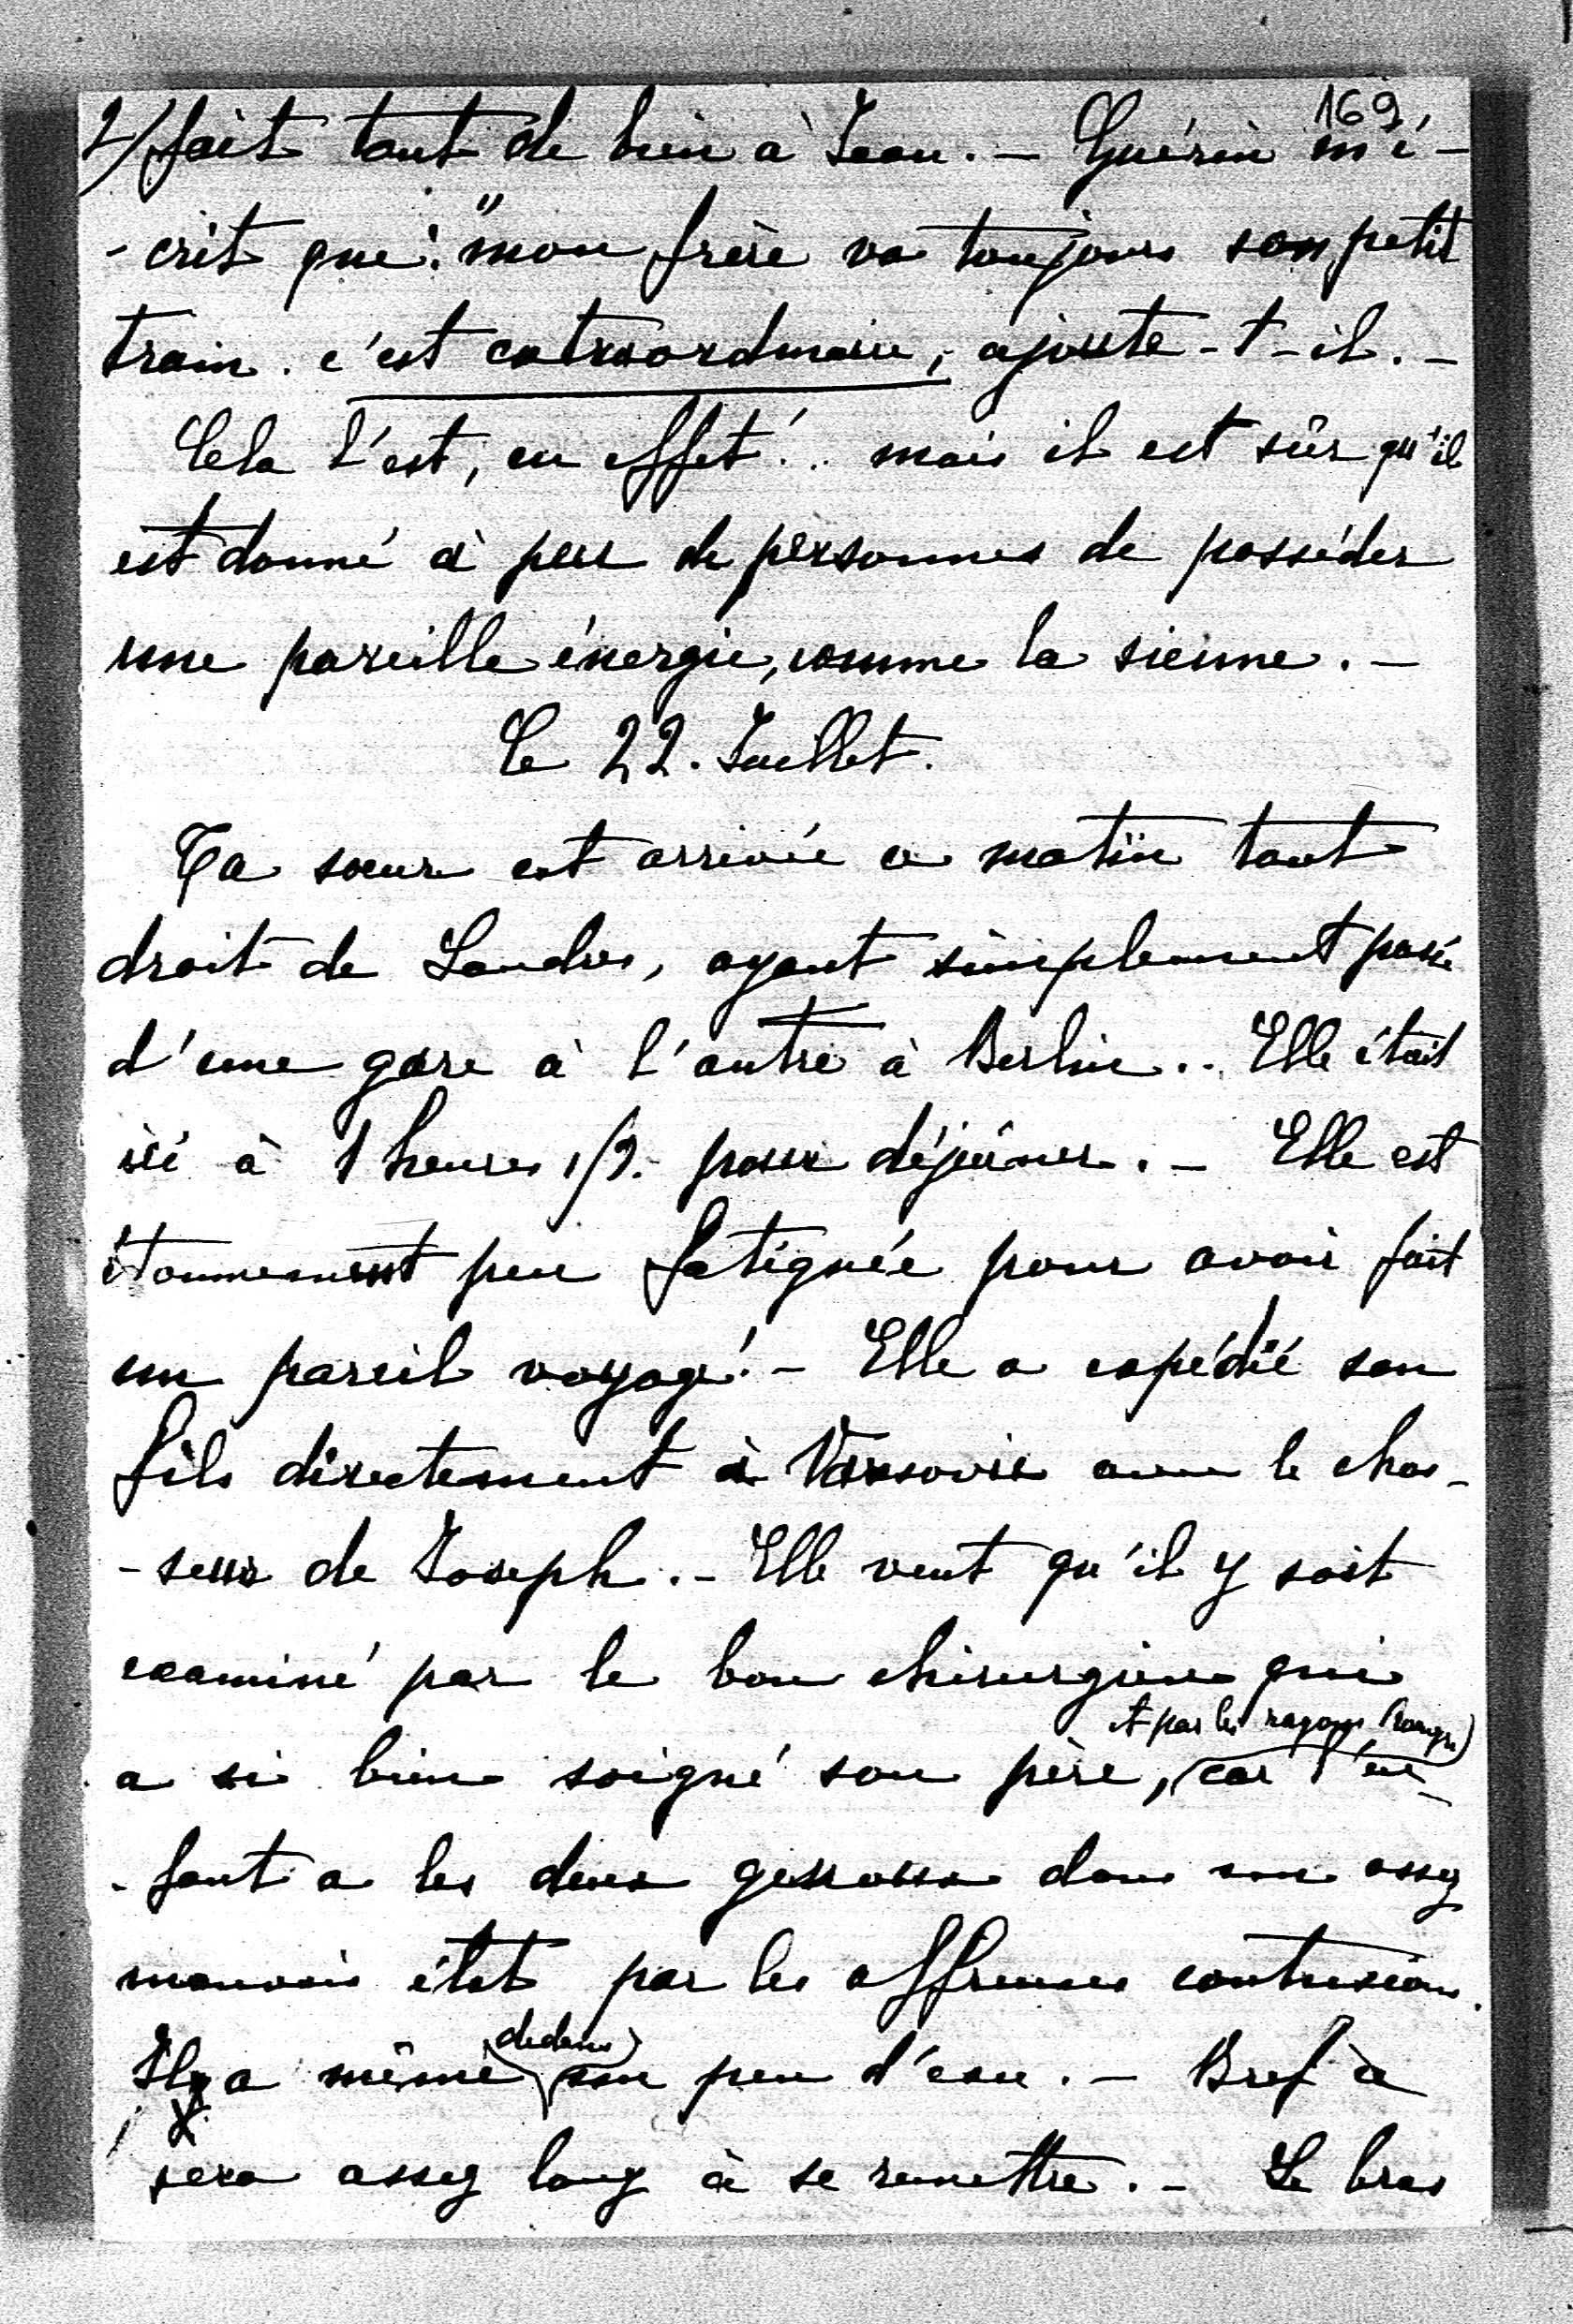 169
2/ fait tant de bien à Jean. — Guérin m'é-
-crit que: "mon frère va toujours son petit
train. c'est extraordinaire, ajoute-t-il. —
Cela l'est, en effet!.. mais il est sûr qu'il
est donné à peu de personnes de posséder
une pareille énergie, comme la sienne. —
Le 22. Juillet.
Ta sœur est arrivée ce matin tout
droit de Londres, ayant simplement passé
d'une gare à l'autre à Berlin.. Elle était
ici à 1 heures 1/2. pour déjeûner. — Elle est
étonnement peu fatiguée pour avoir fait
un pareil voyage! — Elle a expédié son
fils directement à Varsovie avec le chas-
-seur de Joseph. — Elle veut qu'il y soit
examiné par le bon chirurgien qui
et par les rayons
a si bien soigné son père, car l'en-
-fant a les deux genoux dans un assez
mauvais état par les affreuses contusions.
Il y a même dedans un peu d'eau. — Bref ce
sera assez long à se remettre. — Le bras